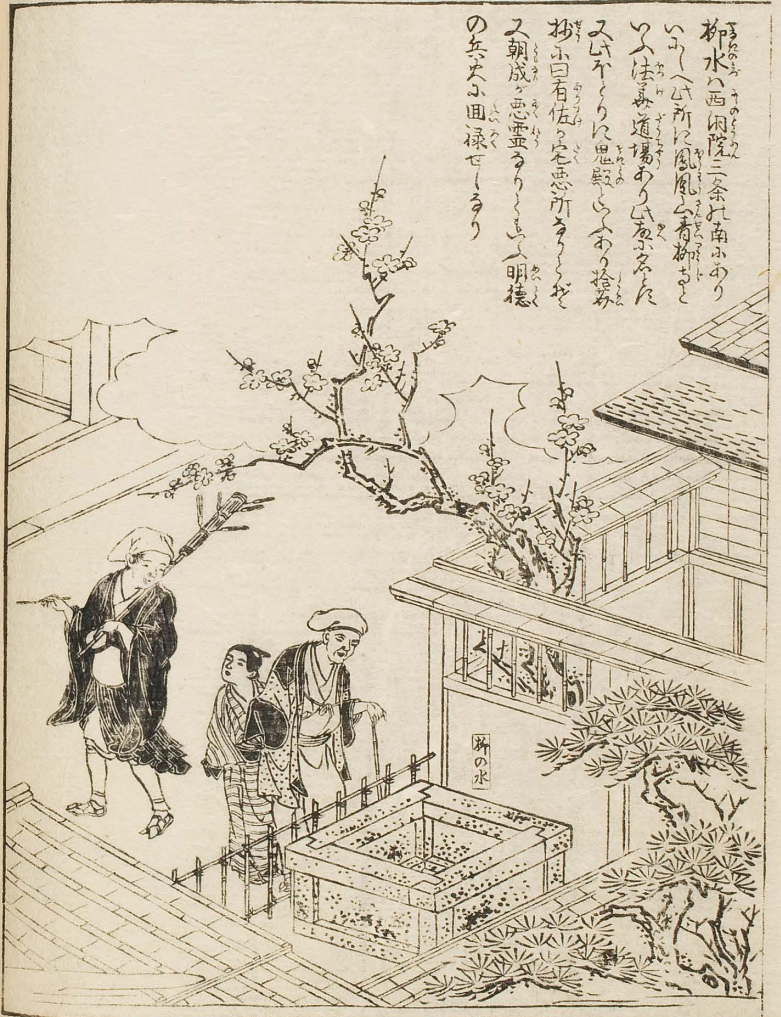 柳水ハ西洞院三条の南にあり
いにしへ此所に鳳凰山青柳寺と
いふ法華道場あり此故に名とに
又此ほとりに鬼殿といふあり拾芥
抄に曰有佐の宅悪所なりとぞ
又朝成が悪霊なりともいふ明徳
の兵火に回禄せしなり
柳の水